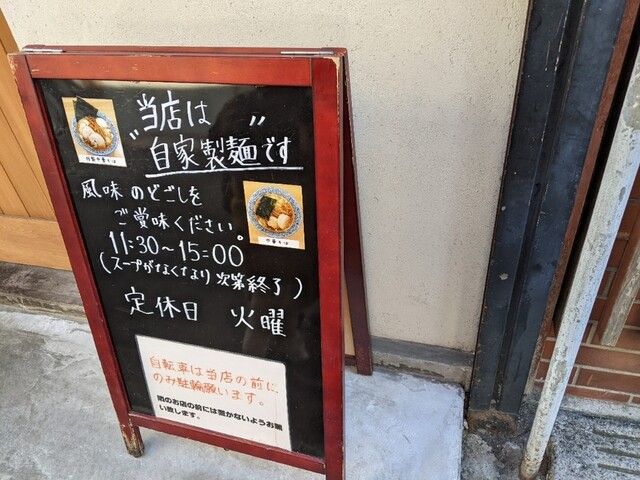 当店は
〝自家製麺〟です
風味のどごしを
ご賞味ください。
11:30～15:00
(スープがなくなり次第終了)
定休日 火曜
特製中華そば
中華そば
自転車は当店の前に
のみ駐輪願います。
隣のお店の前には置かないようお願
い致します。